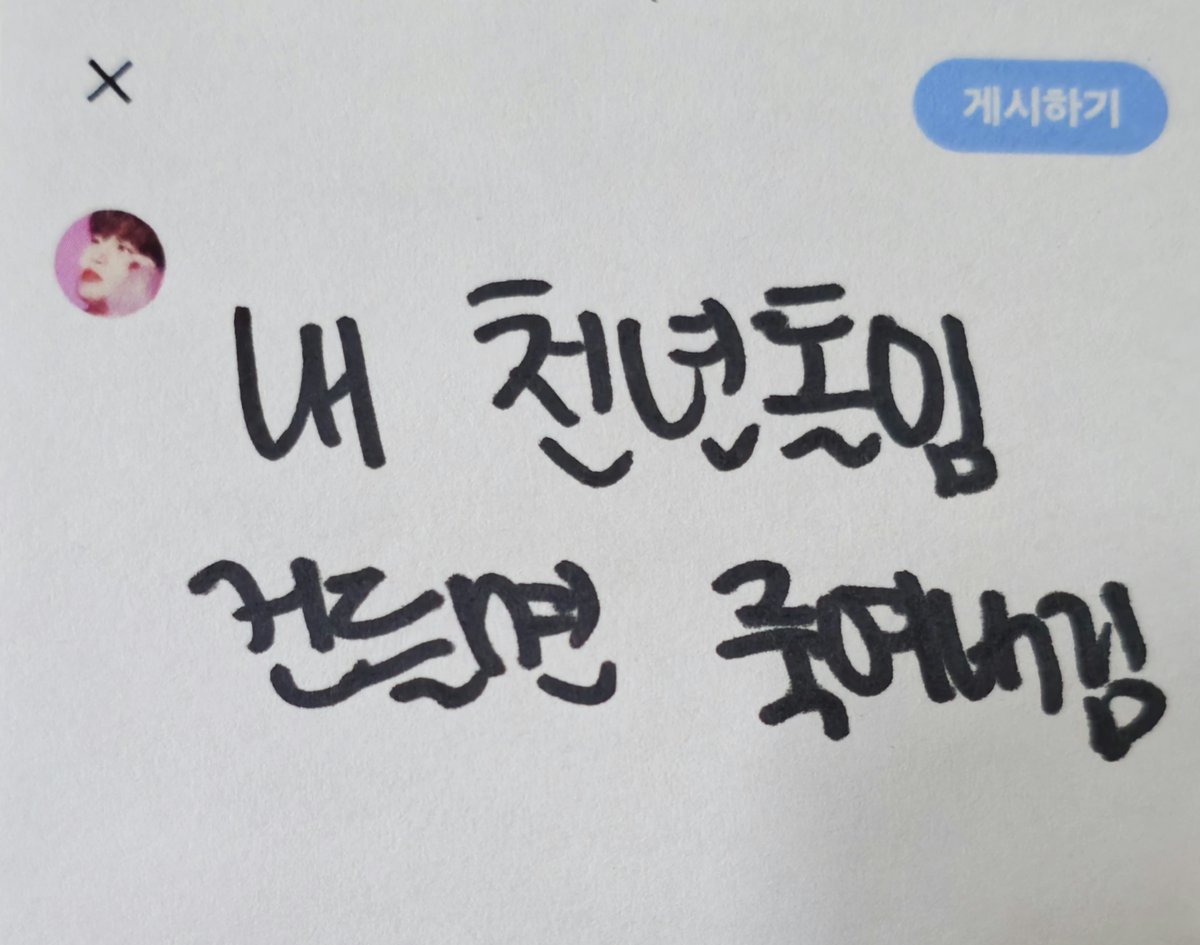 게시하기
내 천년돌임
건들면 죽여버림